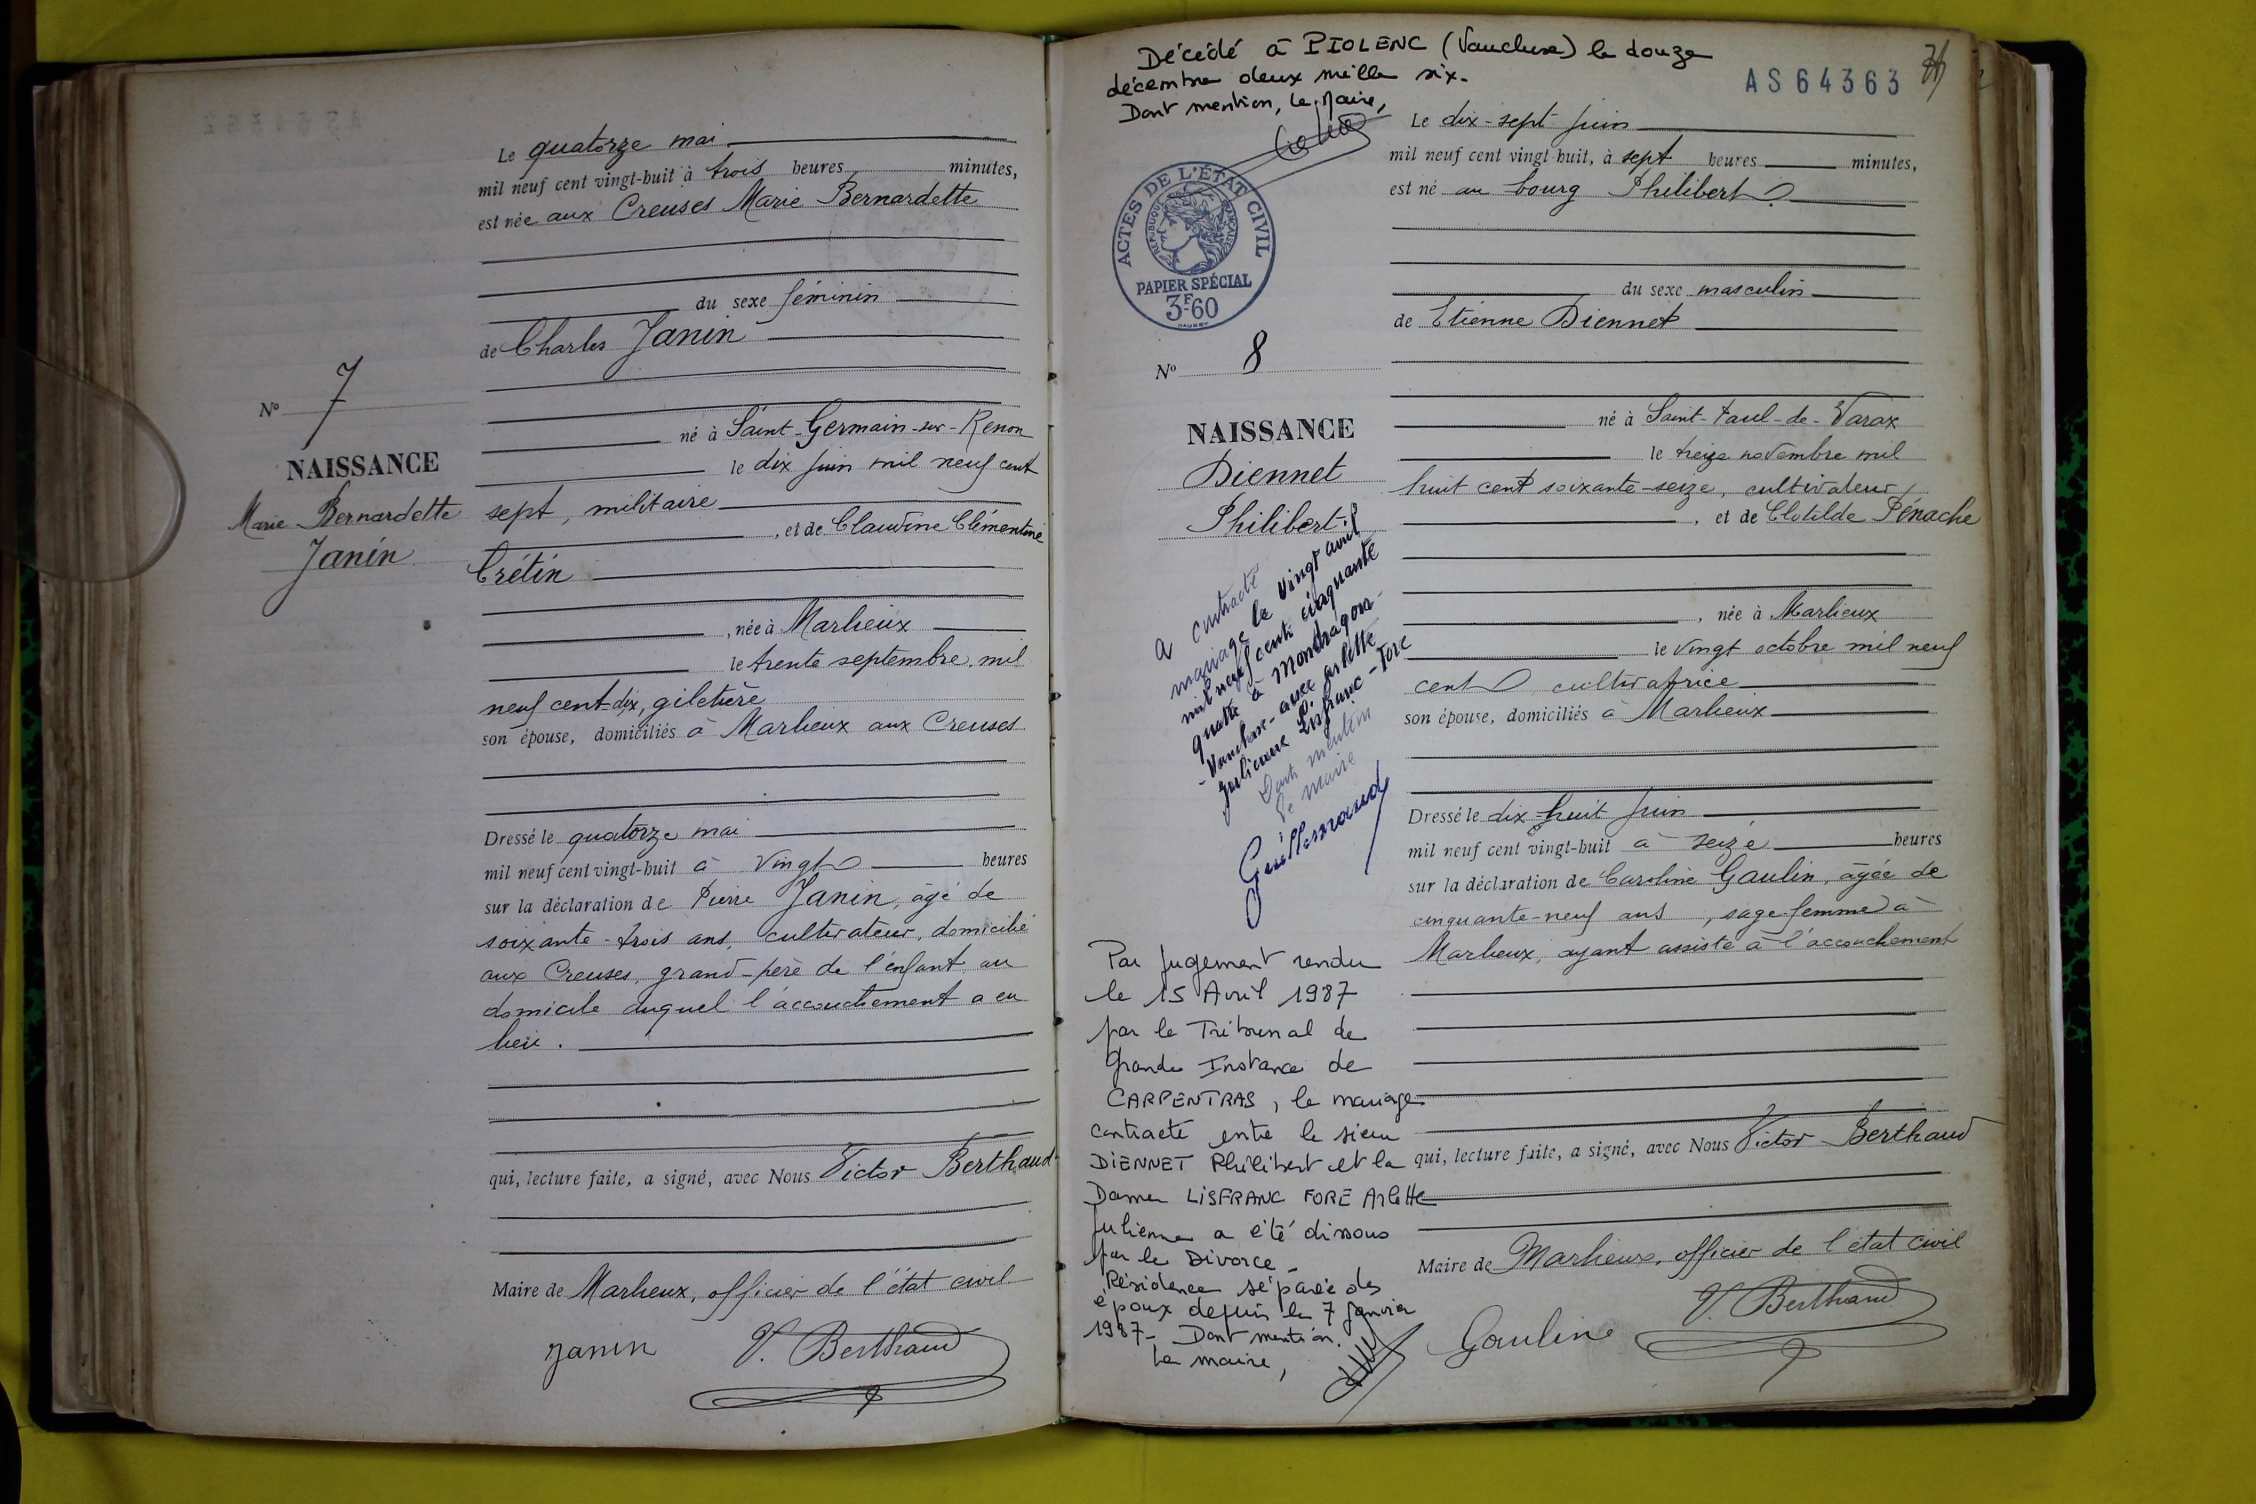 Le quatorze mai
mil neuf cent vingt-huit à trois heures minutes,
est née aux Creuses Marie Bernardette
du sexe féminin
de Charles Janin
N° 7
NAISSANCE
Marie Bernardette
Janin
né à Saint-Germain-sur-Renon
le dix juin mil neuf cent
sept, militaire
, et de Claudine Clémentine
Crétin
, née à Marlieux
le trente septembre mil
neuf cent dix, giletière
son épouse, domiciliés à Marlieux aux Creuses
Dressé le quatorze mai
mil neuf cent vingt-huit à vingt heures
sur la déclaration de Pierre Janin, âgé de
soixante-trois ans, cultivateur, domicilié
aux Creuses, grand-père de l'enfant au
domicile duquel l'accouchement a eu
lieu.
qui, lecture faite, a signé, avec Nous Victor Berthaud
Maire de Marlieux, officier de l'état civil
Janin V. Berthaud
Décédé à PIOLENC (Vaucluse) le douze
décembre deux mille six.
Dont mention, Le Maire,
AS64363
ACTES DE L'ÉTAT CIVIL
RÉPUBLIQUE FRANÇAISE
PAPIER SPÉCIAL
3F60
N° 8
NAISSANCE
Diennet
Philibert
a contracté
mariage le vingt avril
mil neuf cent cinquante
quatre à Mondragon-
-Vaucluse- avec Arlette
Julienne Lisfranc-Fore
Dont mention
le maire
Guillermaud
Par jugement rendu
le 15 Avril 1987
par le Tribunal de
Grande Instance de
CARPENTRAS, le mariage
contracté entre le sieur
DIENNET Philibert et la
Dame LISFRANC FORE Arlette
Julienne a été dissous
par le Divorce -
Résidence séparée des
époux depuis le 7 Janvier
1987 - Dont mention.
Le maire,
Le dix-sept juin
mil neuf cent vingt huit, à sept heures minutes,
est né au bourg Philibert
du sexe masculin
de Etienne Diennet
né à Saint-Paul-de-Varax
le treize novembre mil
huit cent soixante-seize, cultivateur
, et de Clotilde Pénache
, née à Marlieux
le vingt octobre mil neuf
cent cultivatrice
son épouse, domiciliés à Marlieux
Dressé le dix-huit juin
mil neuf cent vingt-huit à seize heures
sur la déclaration de Caroline Gaulin, âgée de
cinquante-neuf ans, sage-femme à
Marlieux, ayant assisté à l'accouchement
qui, lecture faite, a signé, avec Nous Victor Berthaud
Maire de Marlieux, officier de l'état civil
V. Berthaud
Gauline